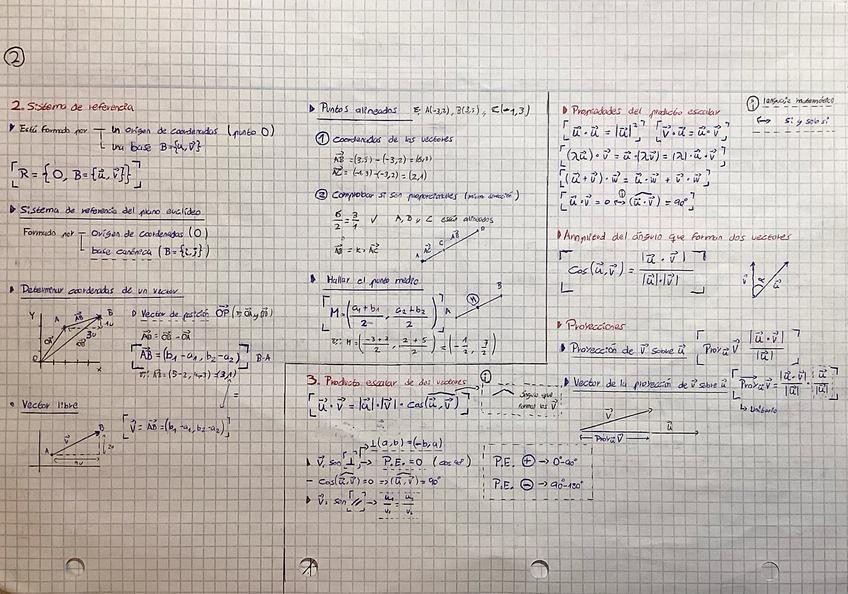 2
2. Sistema de referencia
Está formado por
un origen de coordenadas (punto O)
una base B={u,v}
R = {O, B={u⃗,v⃗}}
Sistema de referencia del plano euclídeo
Formado por
origen de coordenadas (O)
base canónica (B={i,j})
Determinar coordenadas de un vector
Y
A
AB
B
x
Vector de posición OP⃗
AB⃗ = OB⃗ - OA⃗
AB⃗ = (b₁-a₁, b₂-a₂)
B-A
Vector libre
A
V⃗
B
V⃗ = AB⃗ = (b₁-a₁, b₂-a₂)
Puntos alineados
A(-3,2), B(3,5), C(-1,3)
1 Coordenadas de los vectores
AB⃗ = (3,5) - (-3,2) = (6,3)
AC⃗ = (-1,3) - (-3,2) = (2,1)
2 Comprobar si son proporcionales
6/2 = 3/1 √ A, B y C están alineados
AB⃗ = k · AC⃗
A
C
B
Hallar el punto medio
M = ((a₁+b₁)/2, (a₂+b₂)/2)
A
M
B
M = ((-3+2)/2, (2+5)/2) = (-1/2, 7/2)
3. Producto escalar de dos vectores
u⃗ · v⃗ = |u⃗| · |v⃗| · cos(u⃗,v⃗)
ángulo que
forman los V⃗
⊥(a,b) = (-b,a)
V⃗s son ⊥ → P.E. = 0 (cos 90°)
cos(u⃗,v⃗) = 0 ⇒ (u⃗,v⃗) = 90°
V⃗s son // → u₁/v₁ = u₂/v₂
P.E. + → 0°-90°
P.E. - → 90°-180°
Propiedades del producto escalar
u⃗ · u⃗ = |u⃗|² v⃗ · u⃗ = u⃗ · v⃗
(λu⃗) · v⃗ = u⃗ · (λv⃗) = (λ) · u⃗ · v⃗
(u⃗ + v⃗) · w⃗ = u⃗ · w⃗ + v⃗ · w⃗
u⃗ · v⃗ = 0 ↔ (u⃗ · v⃗) = 90°
lenguaje matemático
↔ si y solo si
Amplitud del ángulo que forman dos vectores
cos(u⃗,v⃗) = |u⃗ · v⃗| / |u⃗| · |v⃗|
v⃗
α
u⃗
Proyecciones
Proyección de v⃗ sobre u⃗
Proy u⃗ v⃗ = |u⃗ · v⃗| / |u⃗|
Vector de la proyección de v⃗ sobre u⃗
Proy u⃗ v⃗ = |u⃗ · v⃗| / |u⃗| · u⃗ / |u⃗|
Unitario
V⃗
u⃗
Proy u⃗ v⃗